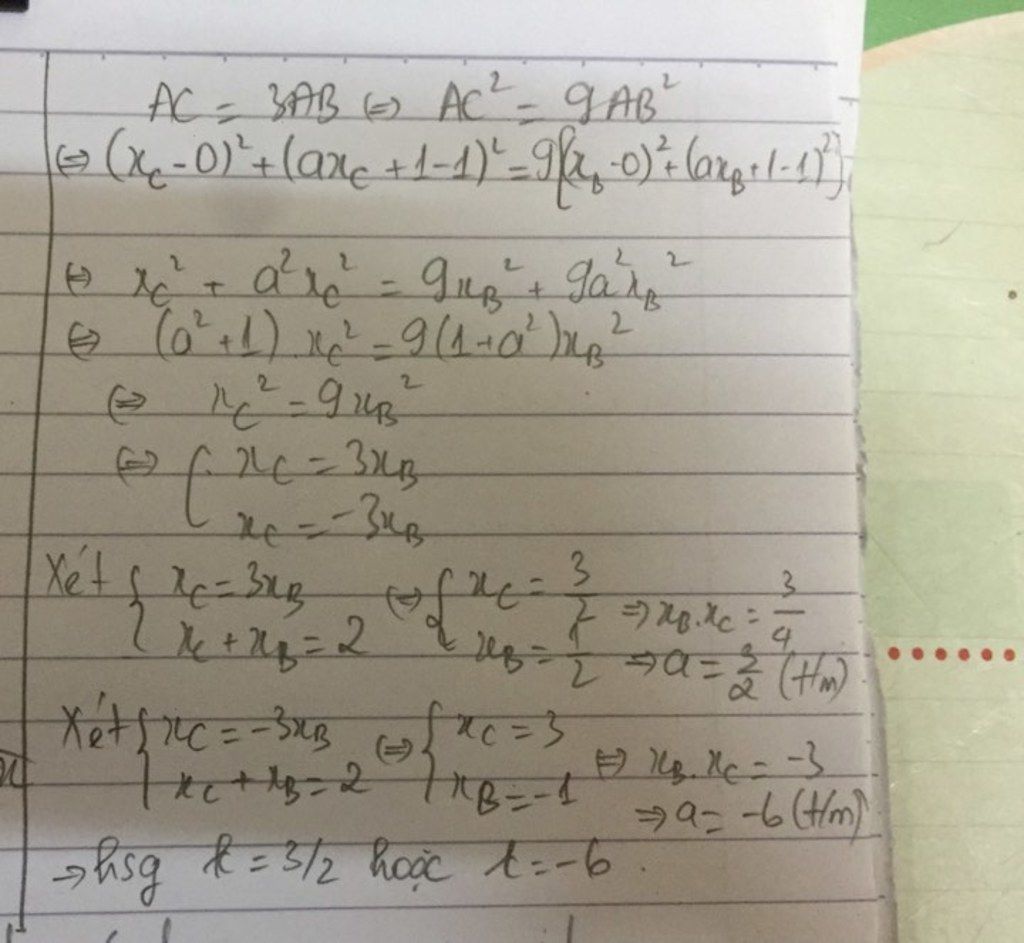 AC = 3AB ⇔ AC² = 9AB²
⇔ (x_C - 0)² + (ax_C + 1 - 1)² = 9[(x_B - 0)² + (ax_B + 1 - 1)²]
⇔ x_C² + a²x_C² = 9x_B² + 9a²x_B²
⇔ (a² + 1) . x_C² = 9(1 + a²)x_B²
⇔ x_C² = 9x_B²
⇔ [ x_C = 3x_B
x_C = -3x_B
Xét { x_C = 3x_B ⇔ { x_C = 3/2 ⇒ x_B . x_C = 3/4
x_C + x_B = 2 x_B = 1/2 ⇒ a = 3/2 (t/m)
Xét { x_C = -3x_B ⇔ { x_C = 3 ⇔ x_B . x_C = -3
x_C + x_B = 2 x_B = -1 ⇒ a = -6 (t/m)
→ hsg k = 3/2 hoặc k = -6 .